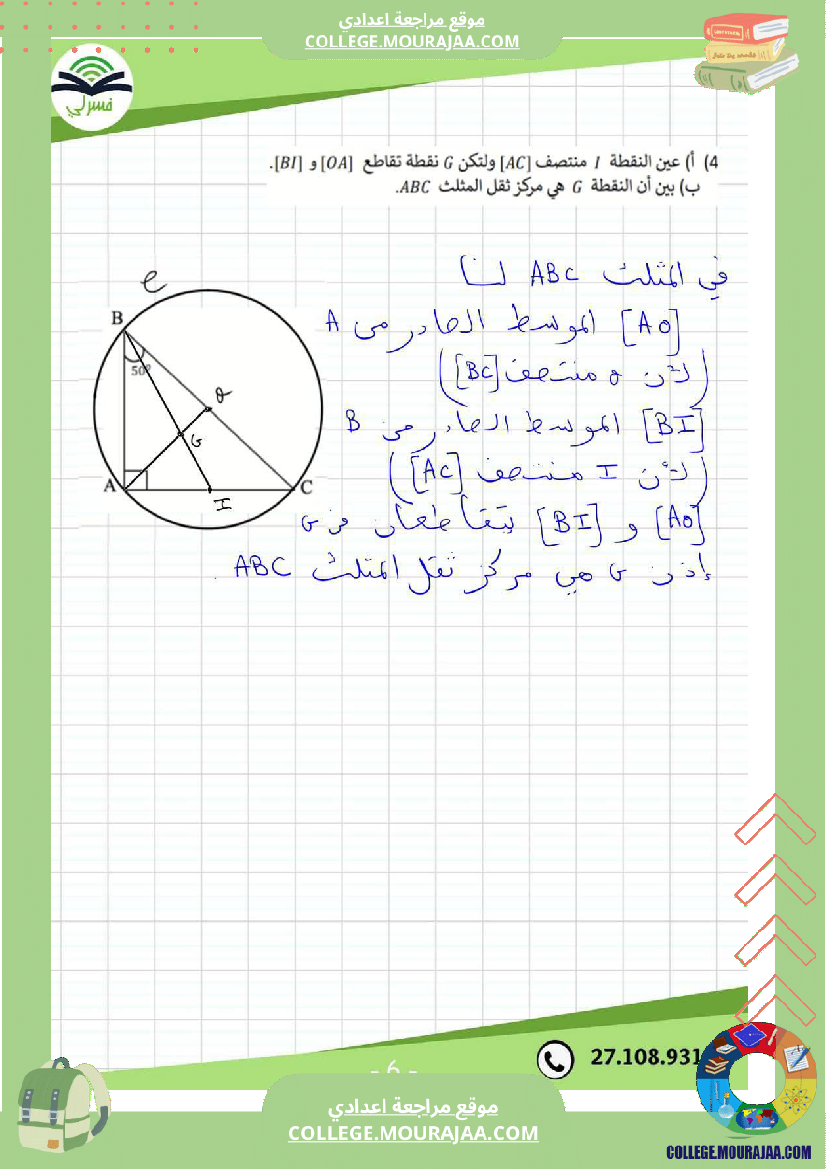 موقع مراجعة اعدادي
COLLEGE.MOURAJAA.COM
فسرلي
4) أ) عين النقطة I منتصف [AC] ولتكن G نقطة تقاطع [OA] و [BI].
ب) بين أن النقطة G هي مركز ثقل المثلث ABC.
في المثلث ABC لنا
[AO] الموسط الصادر من A
(لأن O منتصف [BC])
[BI] الموسط الصادر من B
(لأن I منتصف [AC])
[AO] و [BI] يتقاطعان في G
إذن G هي مركز ثقل المثلث ABC.
B
50°
O
G
A
I
C
27.108.931
- 6 -
موقع مراجعة اعدادي
COLLEGE.MOURAJAA.COM
COLLEGE.MOURAJAA.COM